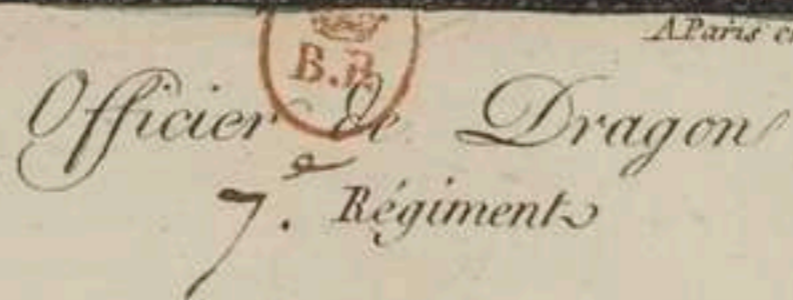 A Paris
B.R.
Officier de Dragon
7.e Régiment